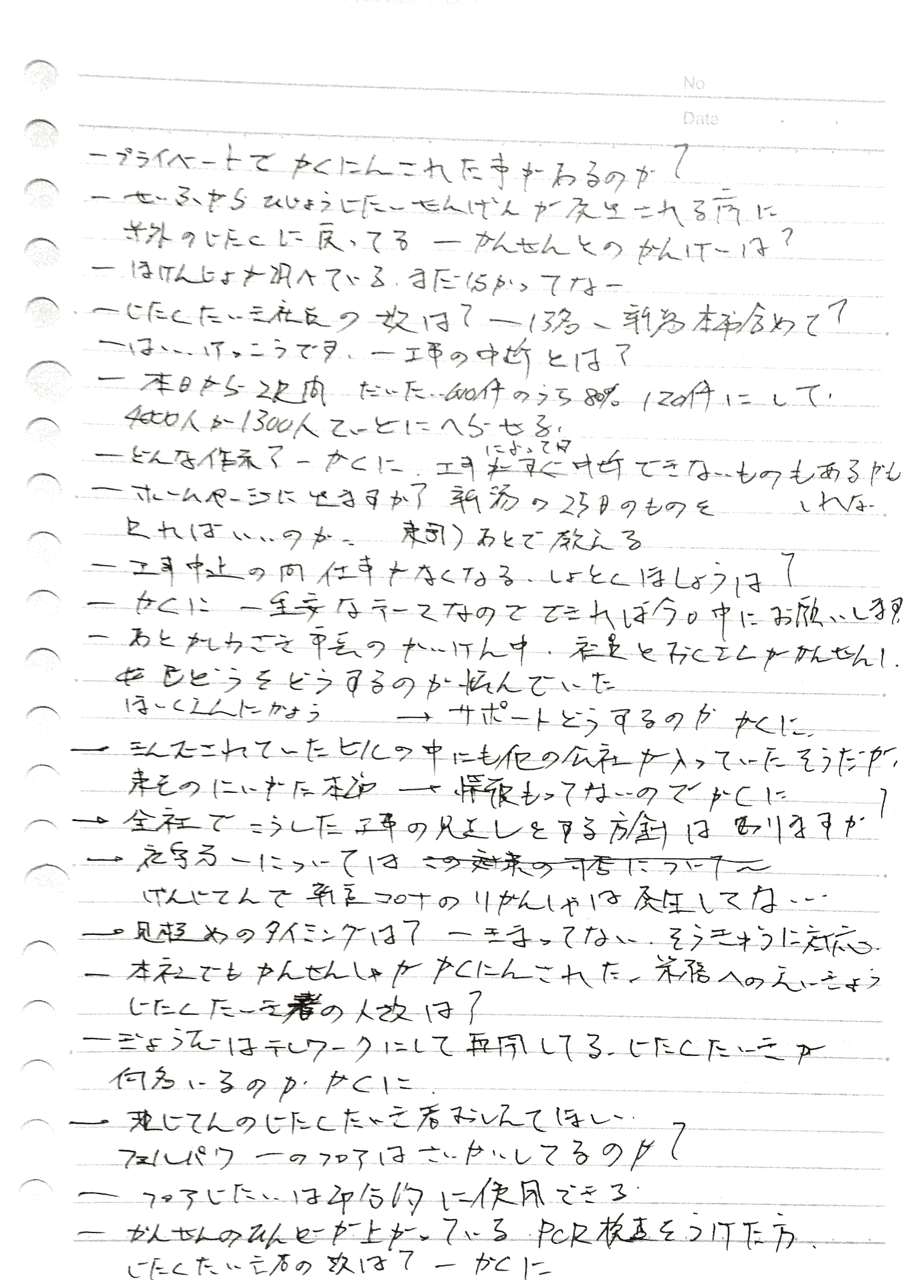 No
Date
ープライベートでかくにんこれた事があるのか?
ーせいふからひじょうじたいせんげんが発生される前に
のじたくに戻ってるーかんせんとのかんけーは?
ーほけんじょが調べている。まだ分かってなー
ーじたくたいき社員の数は?ー13名、新潟本社含めて?
ーはい、けっこうです。ー工事の中断とは?
ー本日から2週間 だいたい600件のうち80% 120件にして、
4000人から1300人ていどにへらせる。
ーどんな作業?ーかくに、工事によってはすぐ中断できないものもあるかも
しれない
ーホームページにでますか? 新潟の25日のものを
見ればいいのか。 あとで教える
ー工事中止の間仕事がなくなる。しょとくほしょうは?
ーかくに ー重要なテーマなのでできれば今日中にお願いします
ーあとかしわざき市長のかいけん中、社員とおくさんがかんせんし、
どうをどうするのか悩んでいた
ほいくえんにかよう → サポートどうするのかかくに、
ーされていたビルの中にも他の会社が入っていたそうだが、
のにいがた本 → 情報もってないのでかくに
→ 全社でこうした工事の見直しをする方針はありますか?
→ ーについては この対策の について〜
げんじてんで新型コロナのりかんしゃは発生してない…
→ 見極めのタイミングは?ーきまってない。そうきゅうに対応。
ー本社でもかんせんしゃがかくにんされた、業務へのえいきょう
じたくたいき者の人数は?
ーぎょうむはテレワークにして再開してる。じたくたいきが
何名いるのか、かくに、
→ 現じてんのじたくたいき者おしえてほしい
ーのフロアはさいかいしてるのか?
ーフロアじたいは部分的に使用できる。
ーかんせんのひんどが上がっている PCR検査をうけた方、
じたくたいき者の数は?ーかくに